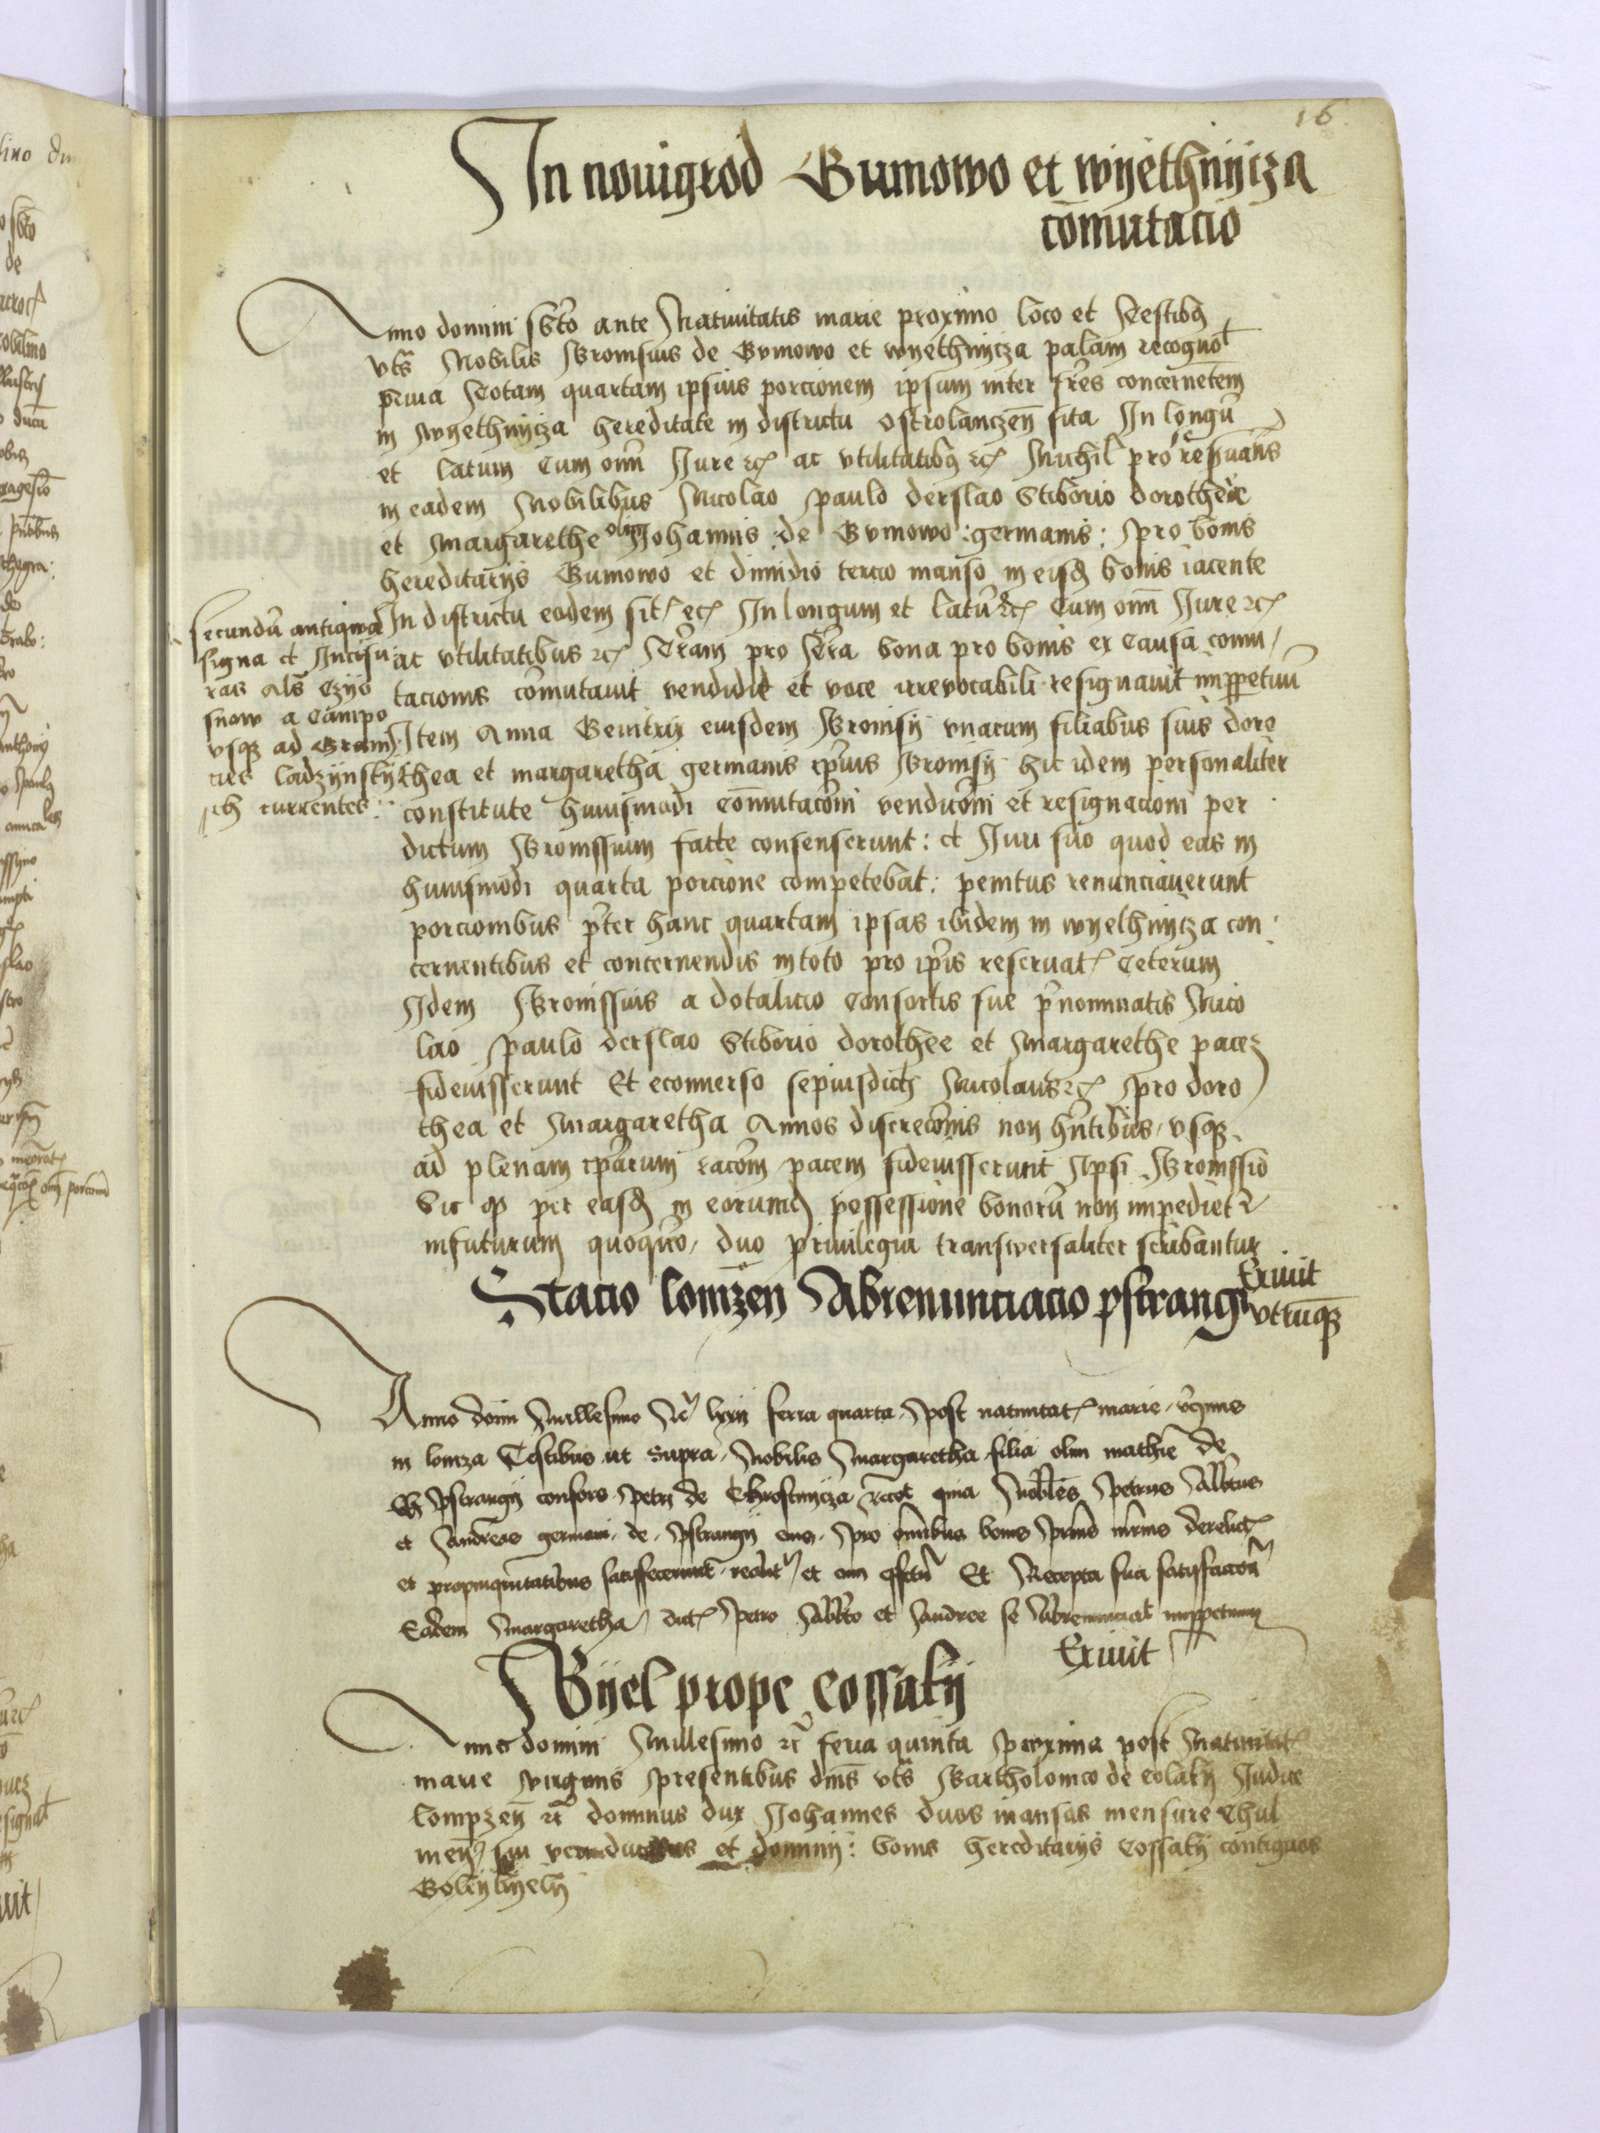 16
In novigrod Gumowo et wyethnycza
co͞mutacio
Anno domini sb̃to ante Nativitatis marie proximo loco et Testibꝯ
vts̃ Nobilis Bronisius de Gvmowo et wyethnycza palam recogno͞t
quartam ipsius porcionem ipsum inter fr̃es concernetem
in wyethnycza hereditate in districtu ostrolanczen̄ sita In longu͞
et latum Cum om̃i Jure ꝛcʒ ac vtilitatibꝯ ꝛcʒ Nichil pro se
in eadem Nobilibus Nicolao paulo derslao Stiborio dorothee
et Margarethe olim Johannis de Gvmowo : germanis : pro bonis
hereditarijs Gumowo et dimidio tercio manso in eisdꝫ bonis iacente
In districtu eodem sit̃ ꝛcʒ In longum et latu͞ ꝛcʒ Cum om̃i Jure ꝛcʒ
ac vtilitatibus ꝛcʒ Ter̃am pro ter̃a bona pro bonis ex causa comu/
tacionis co͞mutavit vendidit et voce irrevocabili resignavit imppetuu͞
Item Anna Genitrix eiusdem Bronisij vnacum filiabus suis doro
thea et margaretha germanis ip̃ius Bronisij hic idem personaliter
constitute huiusmodi com̃utac̃oni vendic̃oni et resignacioni per
dictum Bronissium facte consenserunt : et Juri suo quod eas in
huiusmodi quarta porcione competebat : penitus renunciaverunt
porcionibus p̃ter hanc quartam ipsas ibidem in wyethnycza con
cernentibus et concernendis in toto pro ip̃is reservat̃ Ceterum
Idem Bronissius a dotalicio Consortis sue p̃nominatis Nico
lao paulo derslao Stiborio dorothee et Margarethe pacez
fideiusserunt Et econverso sepiusdicti Nicolaus ꝛcʒ pro doro
thea et Margaretha Annos discrec̃onis non hñtibus / vsqꝫ
ad plenam ip̃arum rac̃om pacem fideiusserunt Ipsi Bronissio
Sic ꝙ per easdꝫ in eorundꝫ possessione bonoru͞ non impediet̃
infuturum quoquo͞ / duo privilegia transwersaliter scribantur
secundu͞ antiqua
signa et Incisu
ras al̃s Czyo
snow a campo
vsqꝫ ad Grani
cies ladzynsky
ch currentes :
Exivit
vtruqꝫ
Stacio lomzen̄ Abrenunciacio pstrangi
Anno domi Millesimo lxxij feria quarta post nativitat̃ marie v̈ginis
in lomza Testibus ut supra Nobilis Margaretha filia olim mathie de
pstrangij consors petri de Chrostnycza quia Nobiles petrus Albtus
et Andreas germani de pstrangij eius pro omibus bonis derelict̃
et propinquitatibus satisfecerunt Et Recepta sua satisfaccōn̄
Eadem Margaretha / dict̃ petro Albto et Andree se Abrenunciat imppetuum
Exivit
Byel prope Cossaky
Anno domini Millesimo ꝛc̃ feria quinta proxima post Nativitat̃
marie virginis presentibus dñis vts̃ Bartholomeo de colaky Judice
lompzen̄ ꝛc̃ dominus dux Johannes duos mansos mensure Chul
men̄ / et domini : bonis hereditarijs Cossaky contiguos